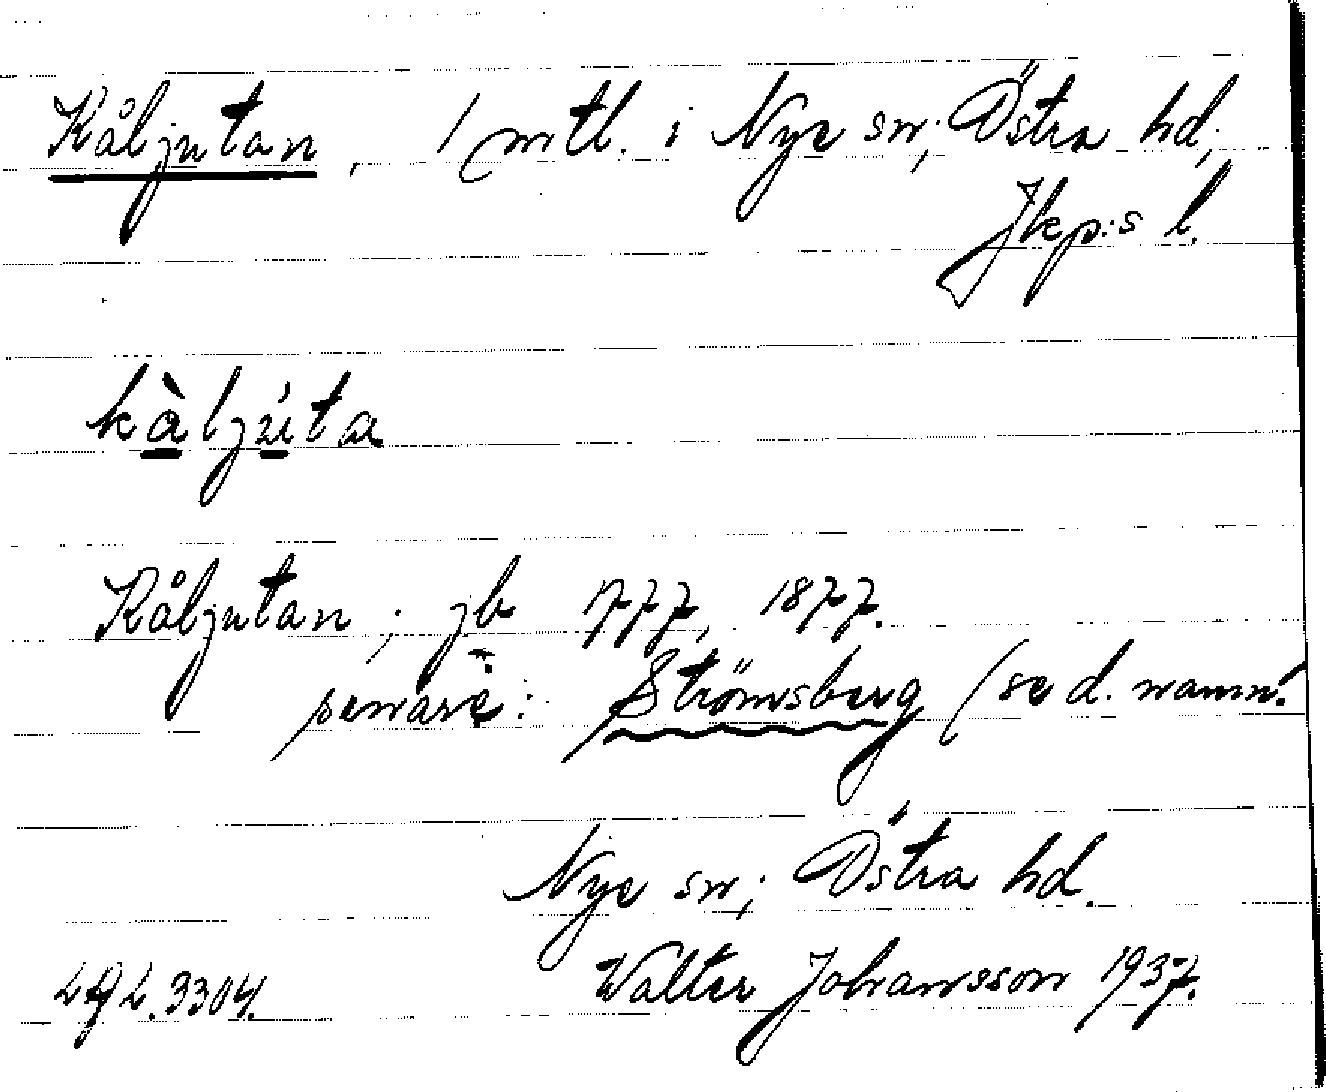 Kåljutan, 1 mtl. i Nye sn; Östra hd;
Jkp:s l.
kàljúta
Kåljutan; jb 1777, 1877.
senare: Strömsberg (se d. namn!
Nye sn; Östra hd.
3304. Walter Johansson 1937.